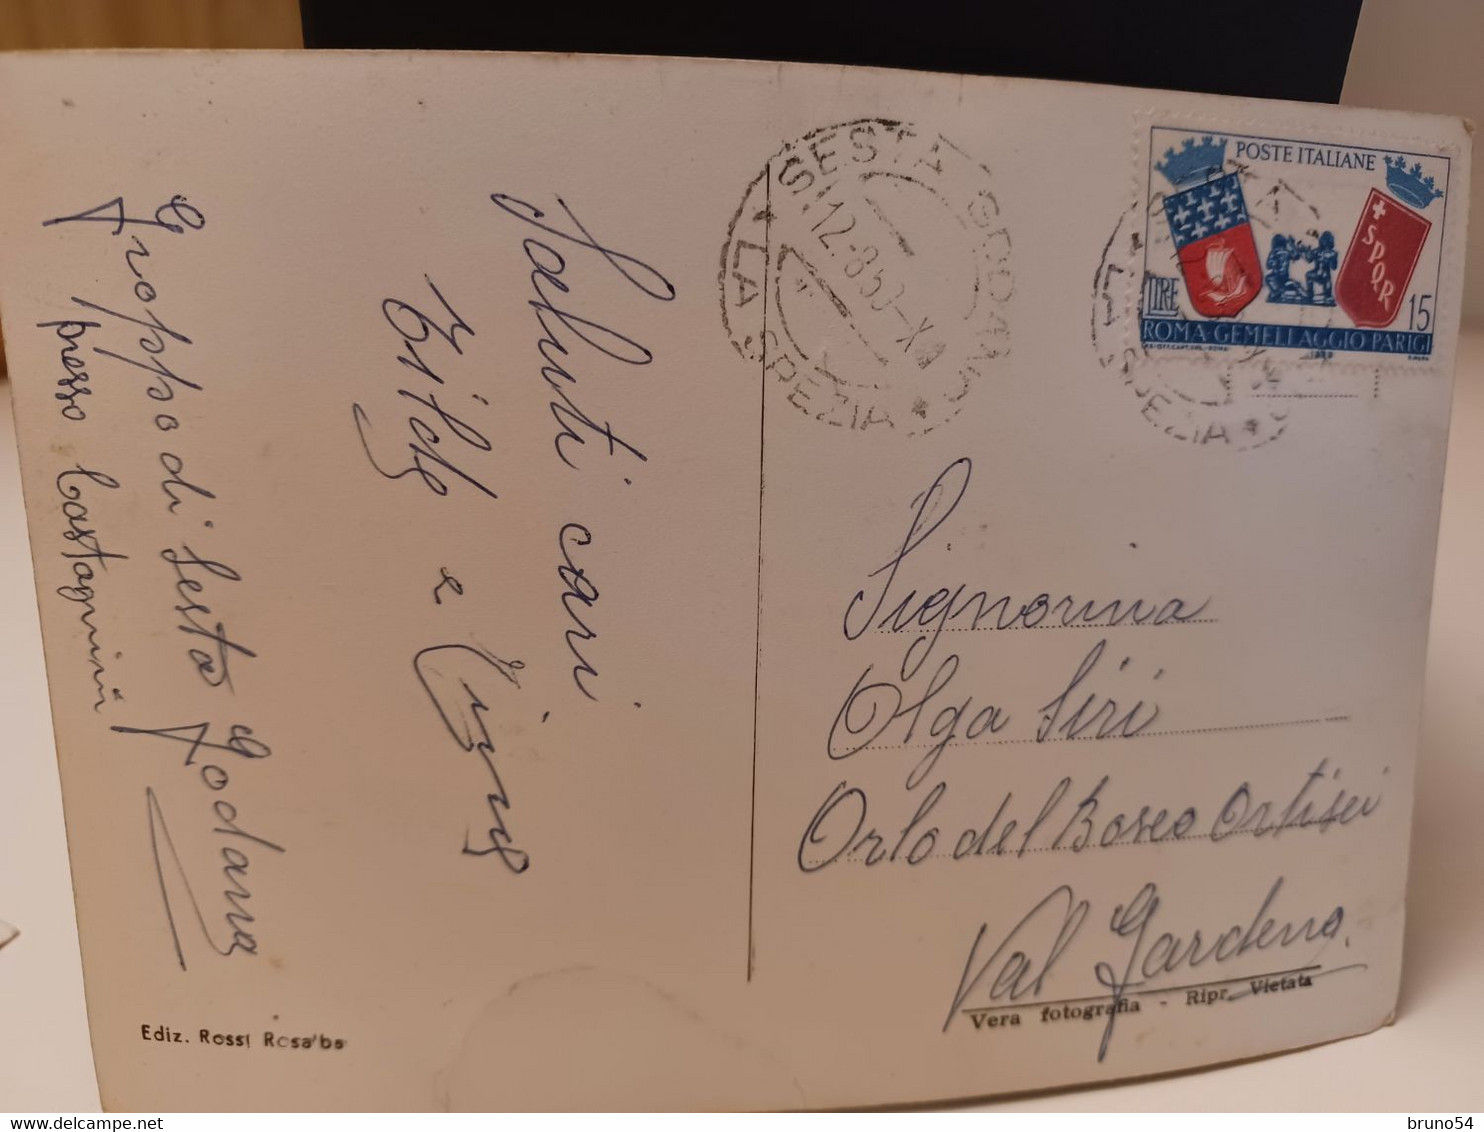 Saluti cari
Tilde e
Groppo di Sesta Godano
presso Castagnini
Ediz. Rossi Rosalba
SESTA GODANO
12-8 59-X
* LA SPEZIA *
POSTE ITALIANE
SPQR
LIRE
15
ROMA-GEMELLAGGIO-PARIGI
LA SPEZIA *
Signorina
Olga Siri
Orlo del Bosco Ortisei
Val Gardena
Vera fotografia - Ripr. Vietata
bruno54